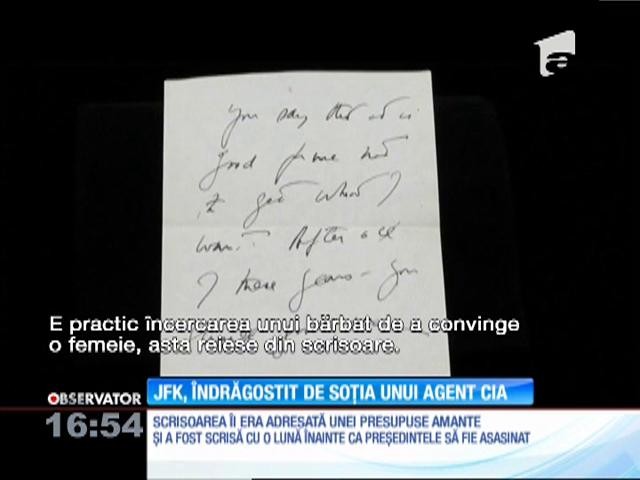 You say that it is
good for me not
to get what I
want. After all
these years – you
E practic încercarea unui bărbat de a convinge
o femeie, asta reiese din scrisoare.
OBSERVATOR
16:54
JFK, ÎNDRĂGOSTIT DE SOȚIA UNUI AGENT CIA
SCRISOAREA ÎI ERA ADRESATĂ UNEI PRESUPUSE AMANTE
ȘI A FOST SCRISĂ CU O LUNĂ ÎNAINTE CA PREȘEDINTELE SĂ FIE ASASINAT